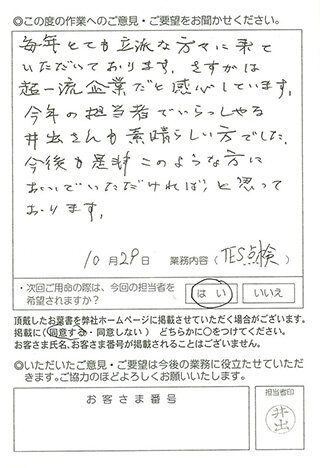 ◎この度の作業へのご意見・ご要望をお聞かせください。
毎年とても立派な方々に来て
いただいております。さすがは
超一流企業だと感心しています。
今年の担当者でいらっしゃる
井出さんも素晴らしい方でした。
今後も是非このような方に
おいでいただければ、と思って
おります。
10月29日 業務内容(TES点検)
・次回ご用命の際は、今回の担当者を
希望されますか?
はい いいえ
頂戴したお葉書を弊社ホームページに掲載させていただく場合がございます。
掲載に(同意する・同意しない) どちらかに○をつけてください。
お客さま氏名、お客さま番号が掲載されることはございません。
◎いただいたご意見・ご要望は今後の業務に役立たせていただ
きます。ご協力のほどよろしくお願いいたします。
お客さま番号
担当者印
井出